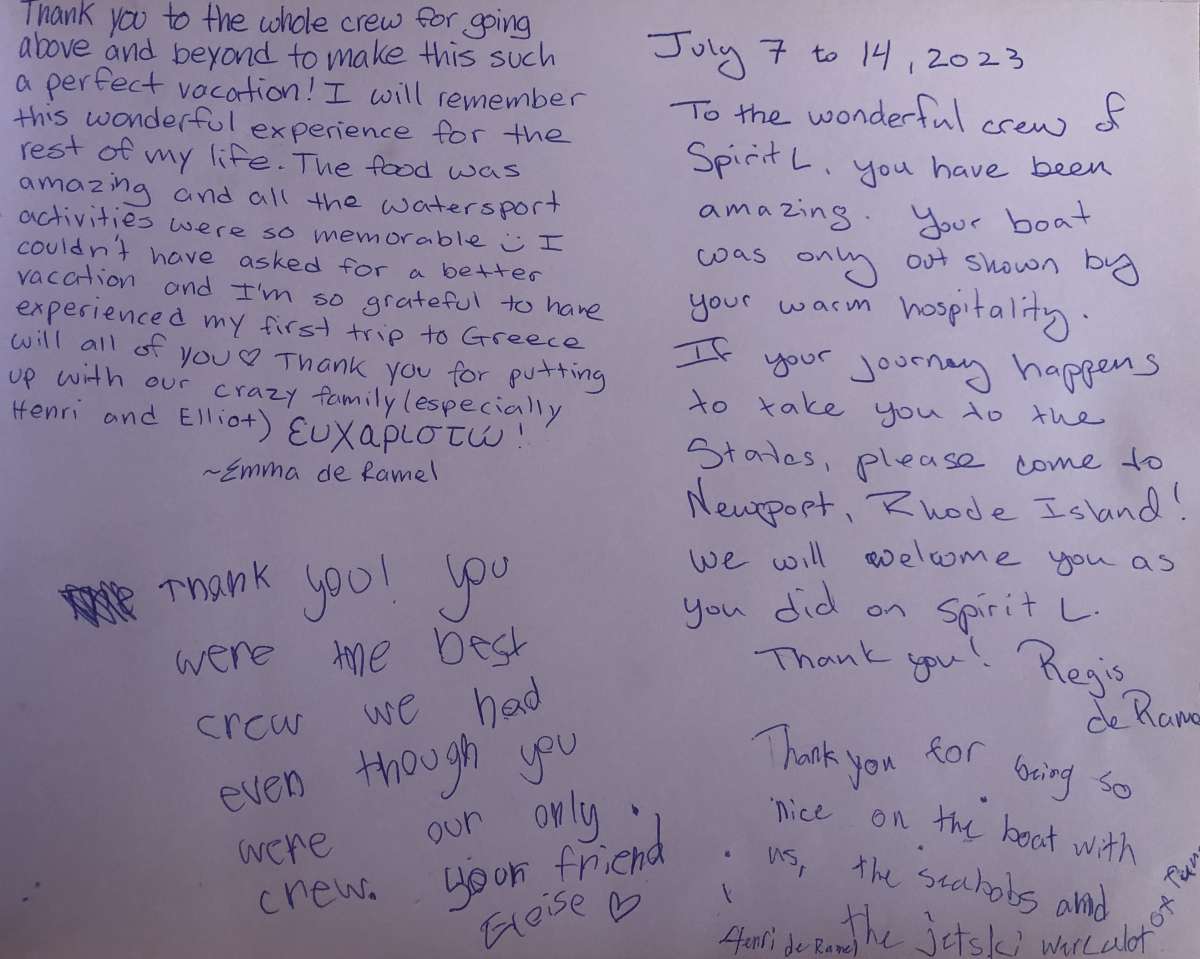 Thank you to the whole crew for going
above and beyond to make this such
a perfect vacation! I will remember
this wonderful experience for the
rest of my life. The food was
amazing and all the watersport
activities were so memorable ☺ I
couldn't have asked for a better
vacation and I'm so grateful to have
experienced my first trip to Greece
will all of you ♡ Thank you for putting
up with our crazy family (especially
Henri and Elliot) ευχαριστώ!
~Emma de Ramel
Thank you! you
were the best
crew we had
even though you
were our only
crew. your friend
Eloise ♡
July 7 to 14, 2023
To the wonderful crew of
Spirit L, you have been
amazing. Your boat
was only out shown by
your warm hospitality.
If your journey happens
to take you to the
States, please come to
Newport, Rhode Island!
we will welcome you as
you did on Spirit L.
Thank you! Regis
de Rame
Thank you for being so
nice on the boat with
us, the seabobs and
the jetski were alot
ox Fun
Henri de Ramel